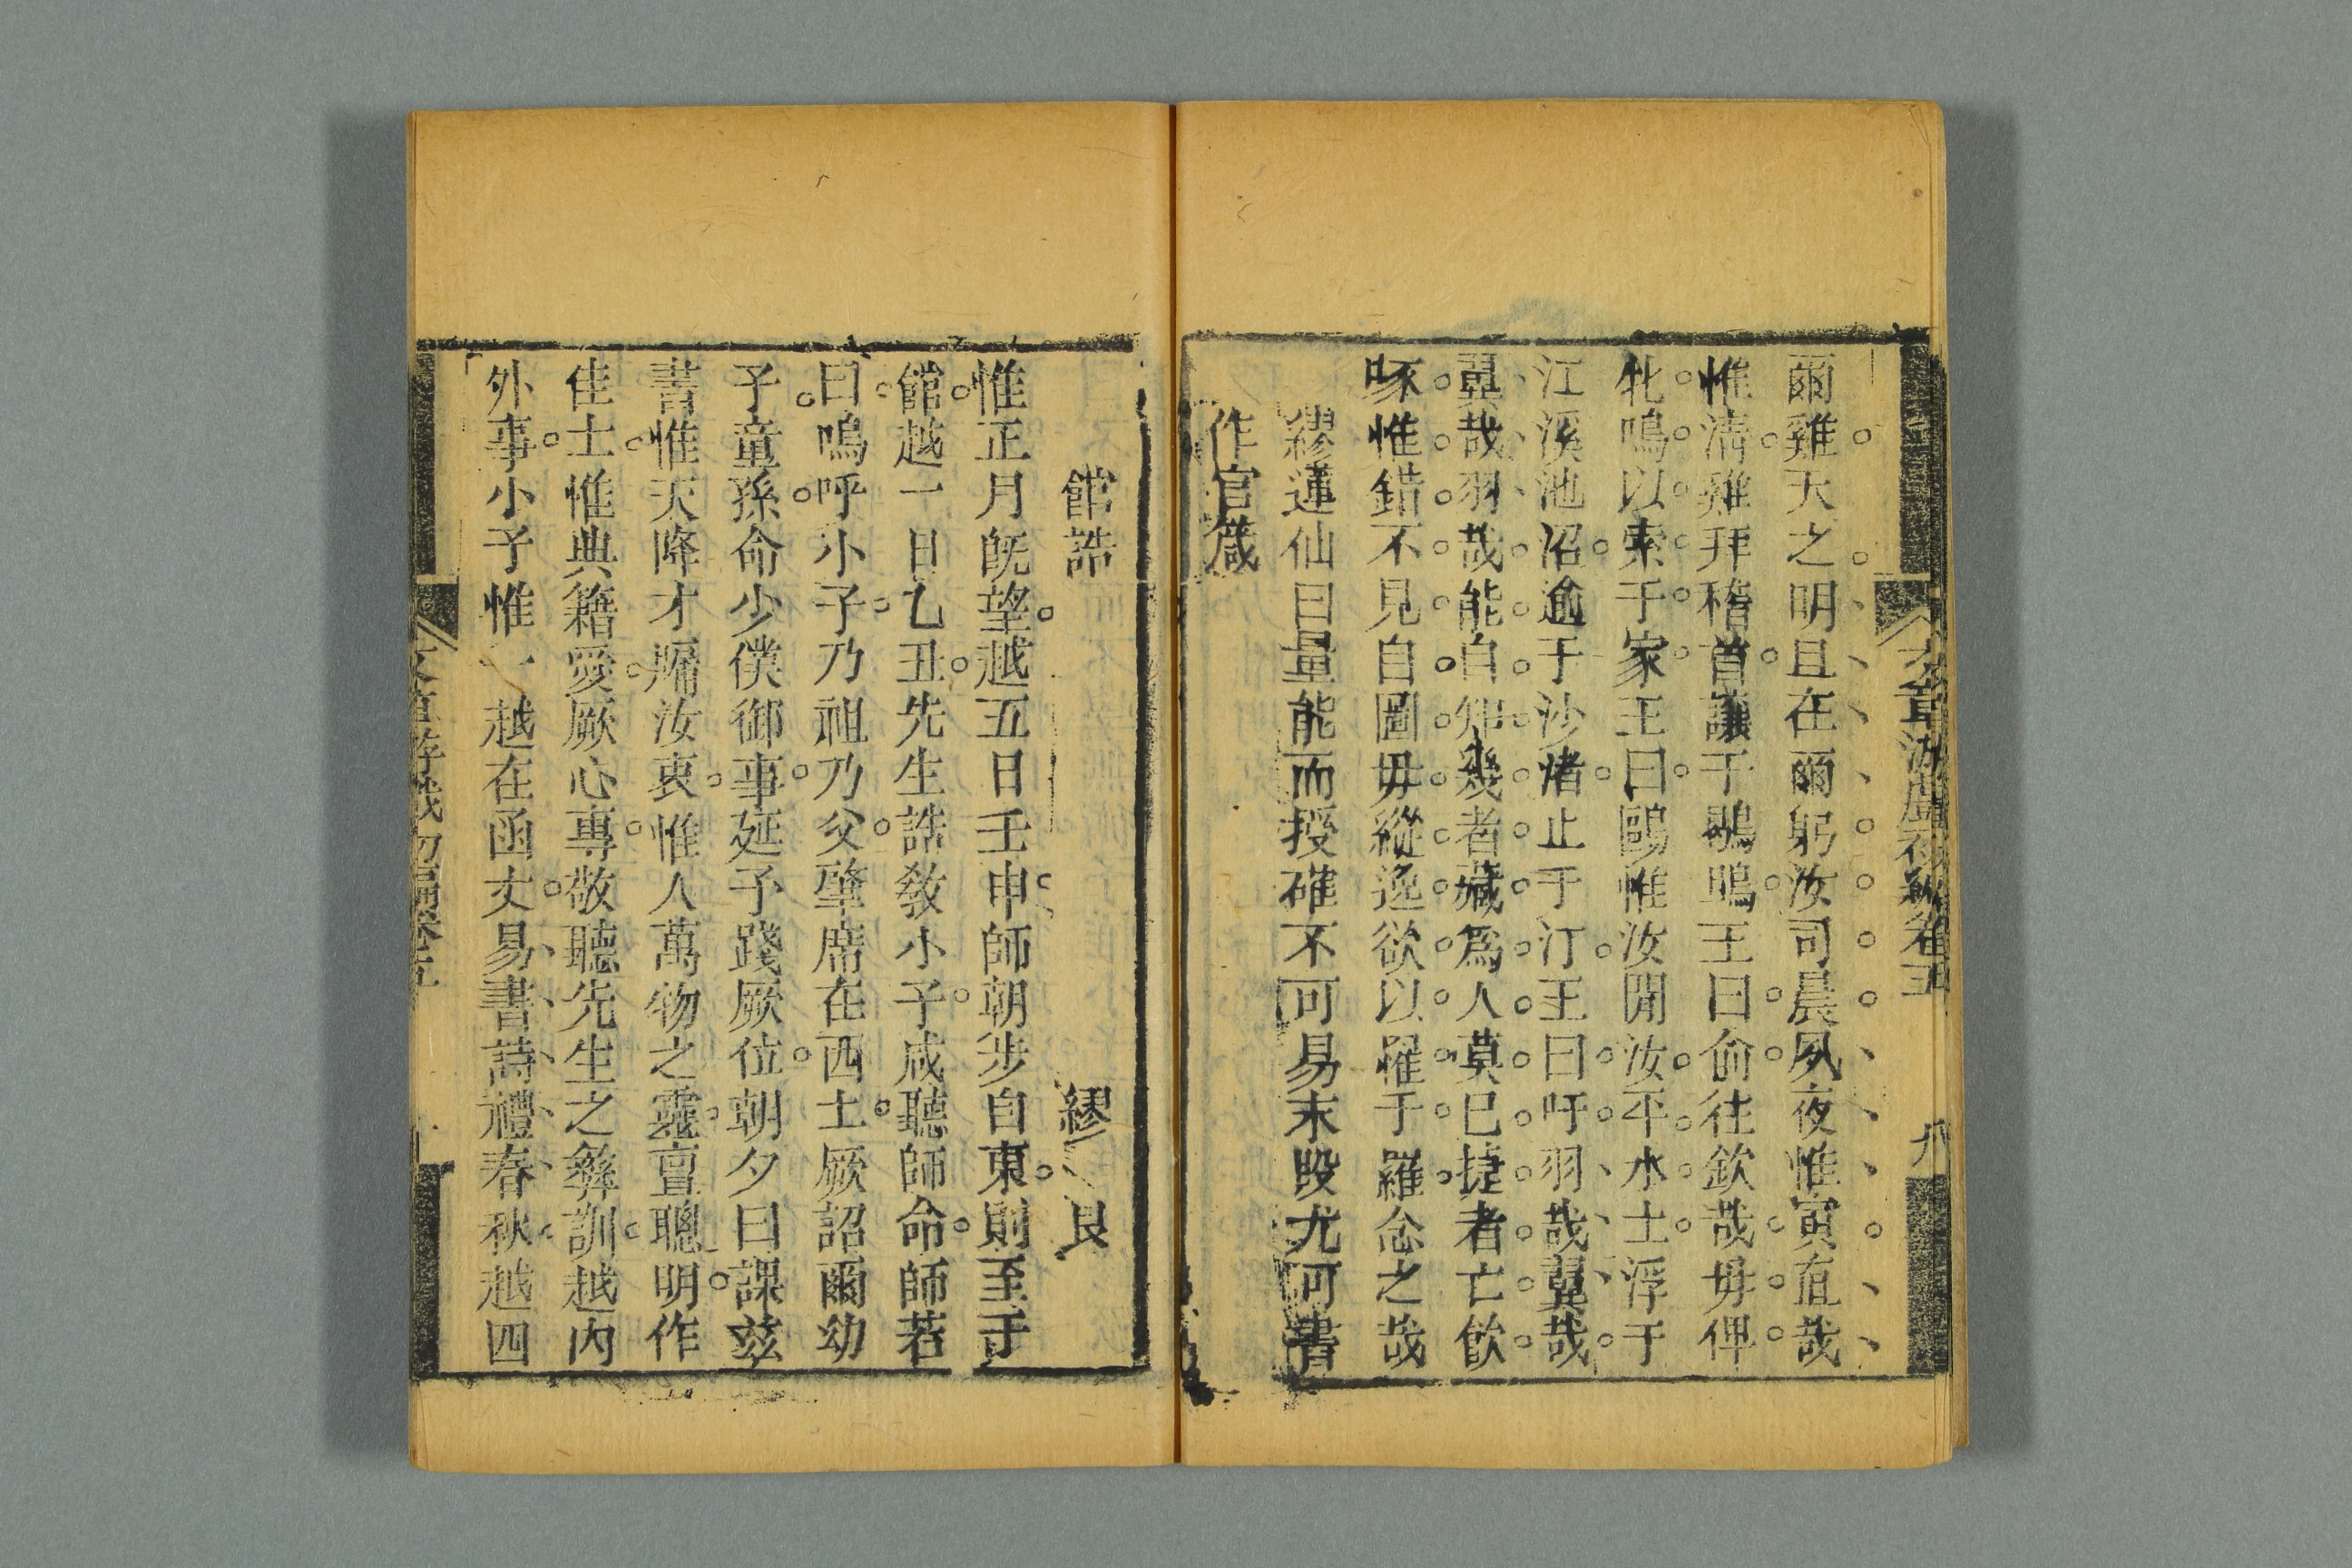 爾雞天之明且在爾躬汝司晨夙夜惟寅直哉
惟清雞拜稽首讓于鶚鴠王曰俞往欽哉毋俾
牝鳴以索于家王曰鷗惟汝閒汝平水土浮于
江溪池沼逾于沙渚止于汀王曰吁羽哉翼哉
翼哉羽哉能自知幾者臧為人莫已捷者亡飲
啄惟錯不見自圖毋縱逸欲以罹于羅念之哉
繆蓮仙曰量能而授確不可易末段尤可書
作官箴
館誥
繆艮
惟正月旣望越五日壬申師朝步自東則至于
館越一日乙丑先生誥敎小子咸聽師命師若
曰嗚呼小子乃祖乃父肇席在西土厥詔爾幼
子童孫命少僕御事延予踐厥位朝夕曰課茲
書惟天降才牖汝衷惟人萬物之靈亶聰明作
佳士惟典籍愛厥心專敬聽先生之彝訓越內
外事小子惟一越在函丈易書詩禮春秋越四